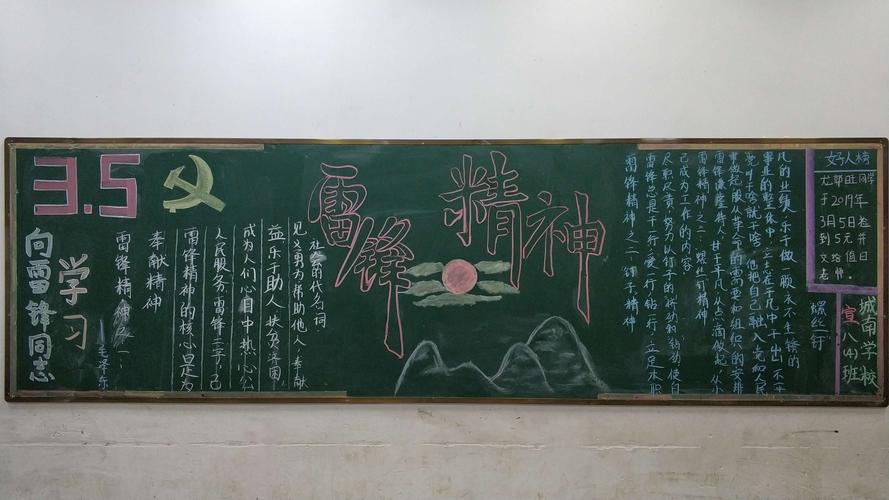 3.5
向雷锋同志
学习
毛泽东
雷锋精神之一:
奉献精神
雷锋精神的核心是为
人民服务,雷锋二字,已
成为人们心目中热心公
益、乐于助人、扶贫济困,
见义勇为帮助他人,奉献
社会的代名词
雷锋精神
雷锋精神之二:钉子精神
雷锋总是干一行,爱一行,钻一行,立足本职
尽职尽责,努力以钉子的
己成为工作的内容
雷锋精神之三:螺丝钉精神
雷锋谦隆 甘于平凡,从点滴做起,从
事做起,服从革命的需要和组织的安排
叫干啥就干啥,他把自己融入党和人民
事业的整体中,立志在平凡中干出不平
凡的业绩,乐于做一颗永不生锈的
螺丝钉
好人榜
旺同学
于2019年
3月5日捡
到5元并
交给值日
老师.
城南学校
宣八(4)班